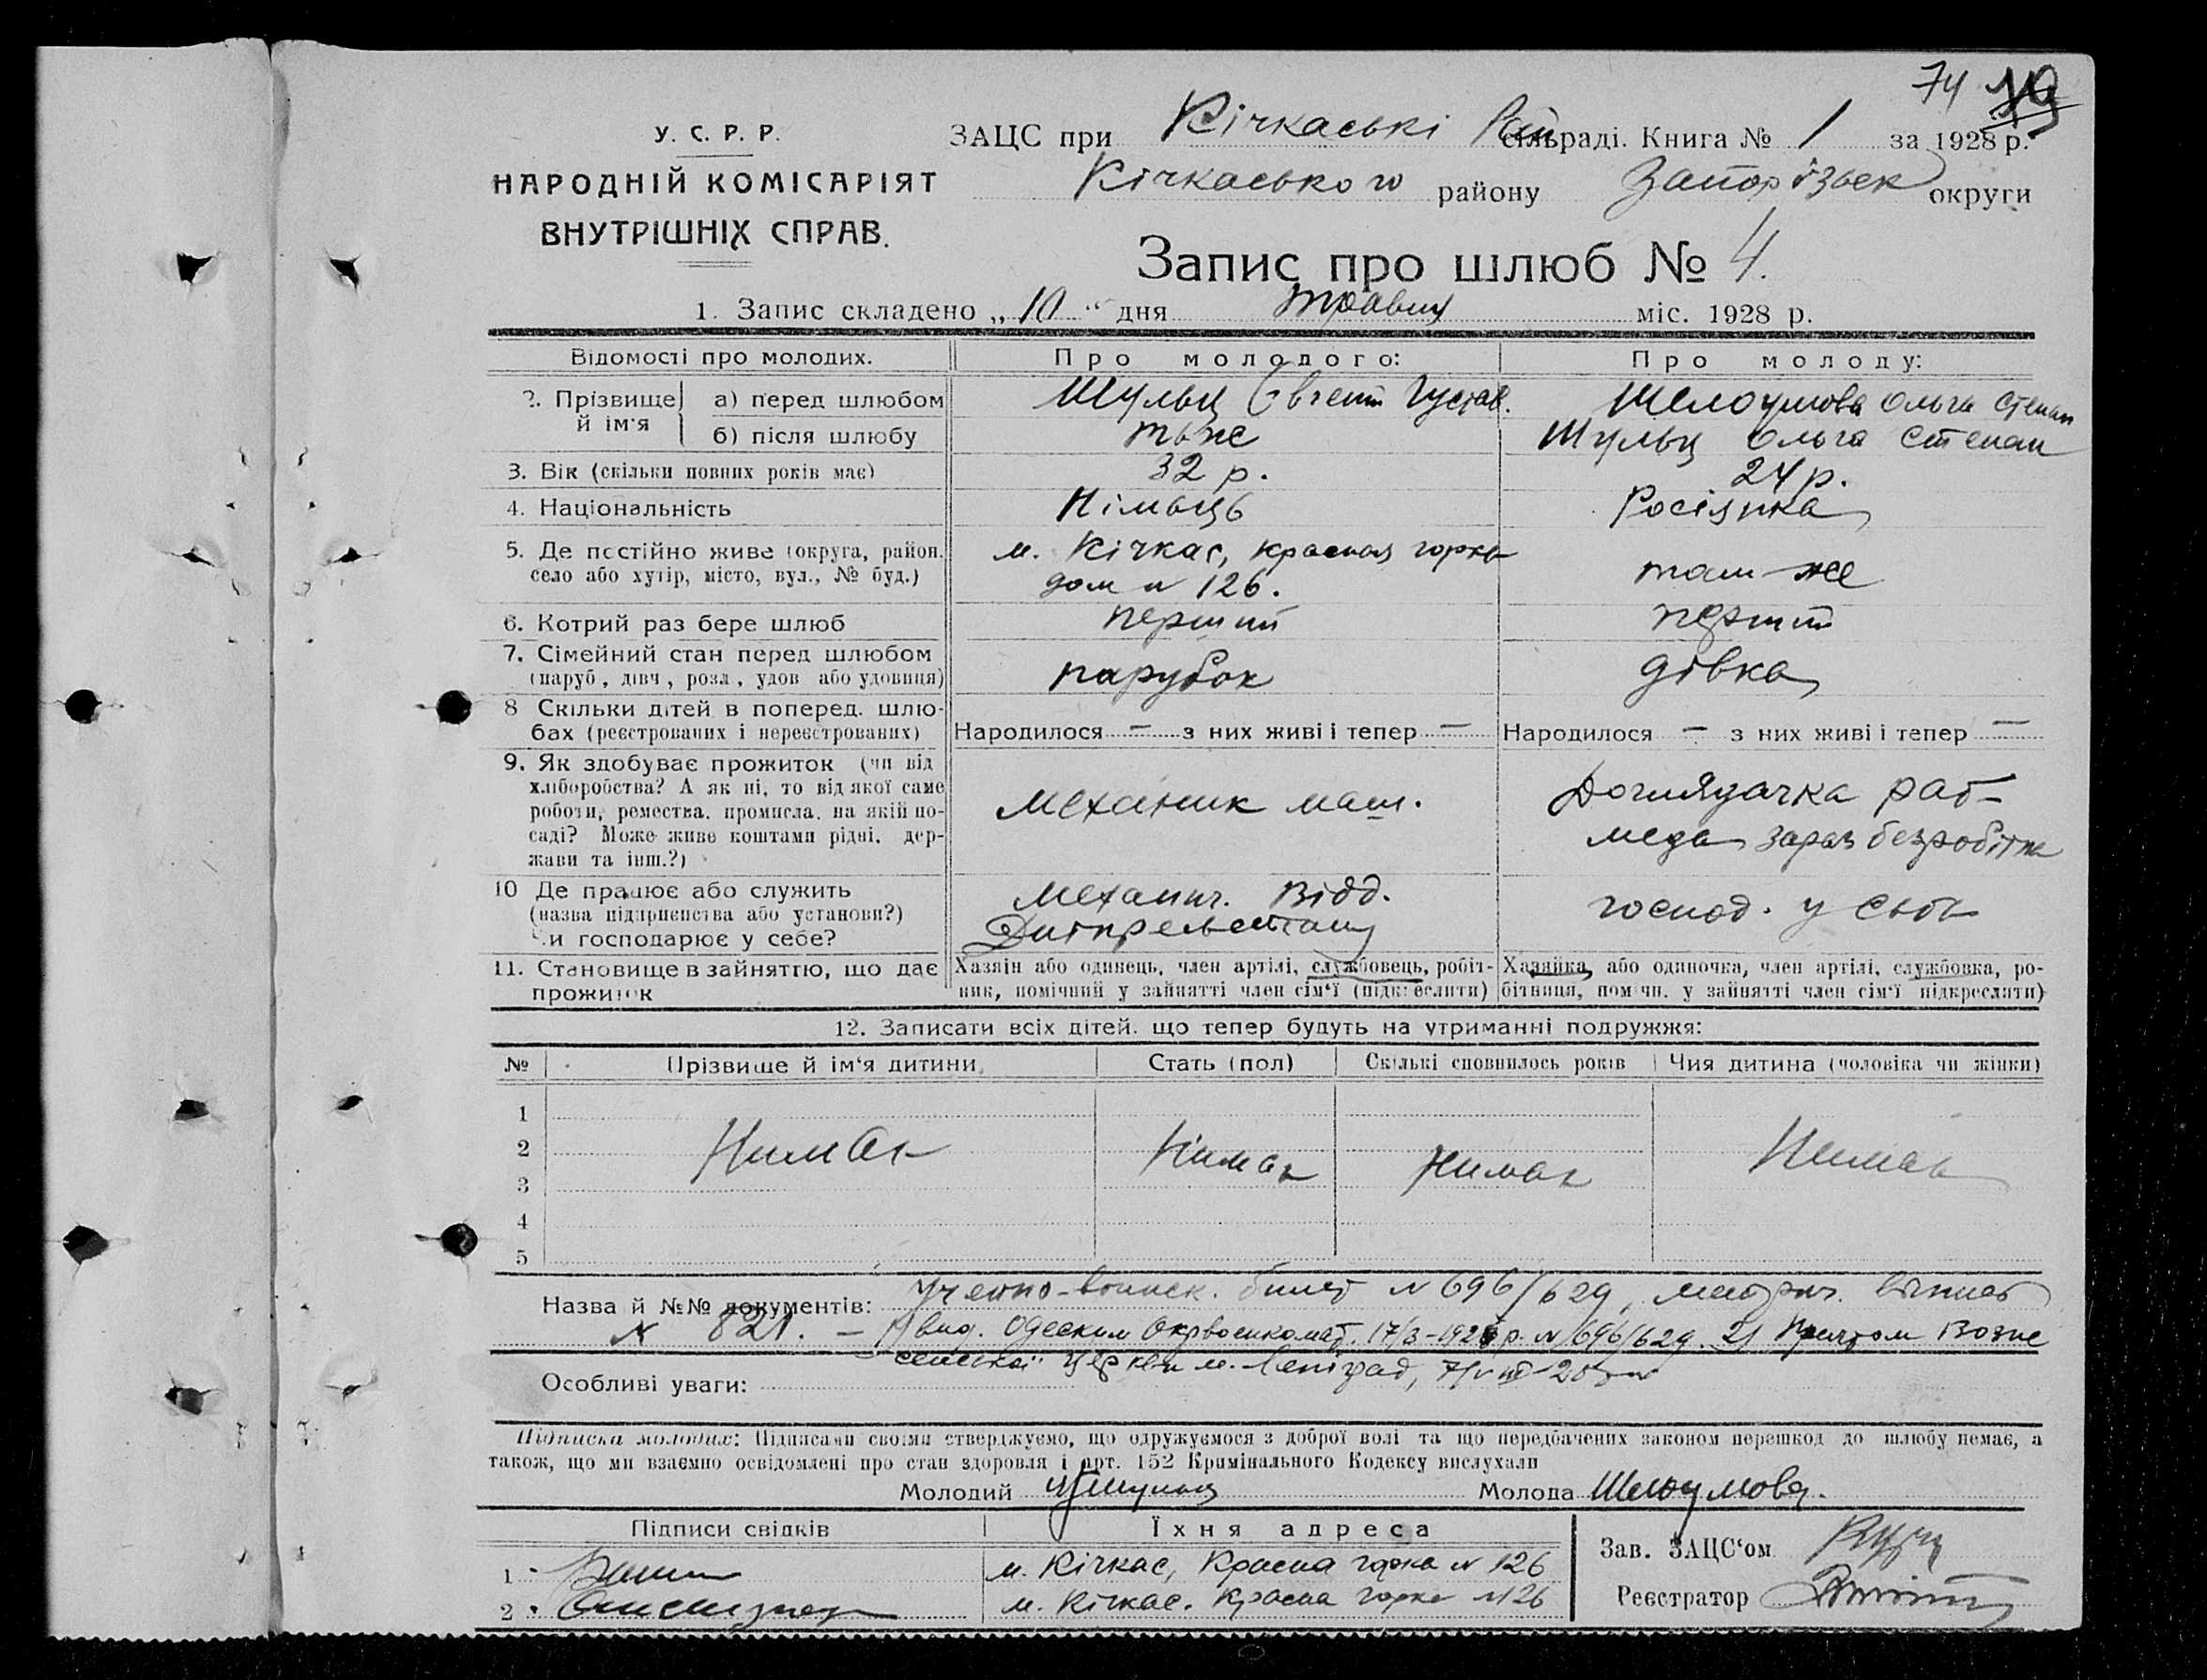 74
У. С. Р. Р.
НАРОДНІЙ КОМІСАРІЯТ
ВНУТРІШНІХ СПРАВ.
ЗАЦС при Кічкаські Рай сільраді. Книга № 1 за 1928 р.
Кічкаського району Запорізьк округи
Запис про шлюб № 4.
1. Запис складено „10" дня травня міс. 1928 р.
Відомості про молодих. Про молодого: Про молоду:
2. Прізвище й ім'я а) перед шлюбом Шульц Євгеній Густав. Шелоумова Ольга Степан
б) після шлюбу теж Шульц Ольга Степан
3. Вік (скільки повних років має) 32 р. 24 р.
4. Національність Німець Росіянка
5. Де постійно живе (округа, район. м. Кічкас, красная горка
село або хутір, місто, вул., № буд.) дом № 126. там-же
6. Котрий раз бере шлюб перший перший
7. Сімейний стан перед шлюбом парубок дівка
(паруб., дівч., розл., удов або удовиця)
8 Скільки дітей в поперед. шлю-
бах (реєстрованих і нереєстрованих) Народилося — з них живі і тепер — Народилося — з них живі і тепер —
9. Як здобуває прожиток (чи від
хліборобства? А як ні, то від якої саме
роботи, ремества, промисла, на якій по-
саді? Може живе коштами рідні, дер-
жави та інш.?)
механик маш.
Доглядачка раб-
меда зараз безробітна
10 Де працює або служить
(назва підприємства або установи?)
Чи господарює у себе?
Механич. Відд.
Дніпрельстану
господ. у себе
11. Становище в зайняттю, що дає
прожиток
Хазяін або одинець, член артілі, службовець, робіт-
ник, помічний у зайнятті член сім'ї (підкреслити)
Хазяйка, або одиночка, член артілі, службовка, ро-
бітниця, помічн. у зайнятті член сім'ї підкреслити)
12. Записати всіх дітей, що тепер будуть на утриманні подружжя:
№ Прізвище й ім'я дитини Стать (пол) Скількі сповнилось років Чия дитина (чоловіка чи жінки)
1
2 Нимає Нимає Нимає Нимає
3
4
5
Назва й №№ документів: Учетно-воинск. билет № 696/629, метрич. виписъ
№ 821. — 1) вид. Одеским Окрвоенкомат. 17/3-1926 р. № 696/629. 2) Причтом Возне
сенской церкви м. Лениград,
Особливі уваги:
Підписка молодих: Підписами своїми стверджуємо, що одружуємося з доброї волі та що передбачених законом перешкод до шлюбу немає, а
також, що ми взаємно освідомлені про стан здоровля і арт. 152 Кримінального Кодексу вислухали
Молодий Шульц Молода Шелоумова.
Підписи свідків Їхня адреса
1 м. Кічкас, Красна горка № 126
2 м. Кічкас. Красна горка № 126
Зав. ЗАЦС'ом
Реєстратор